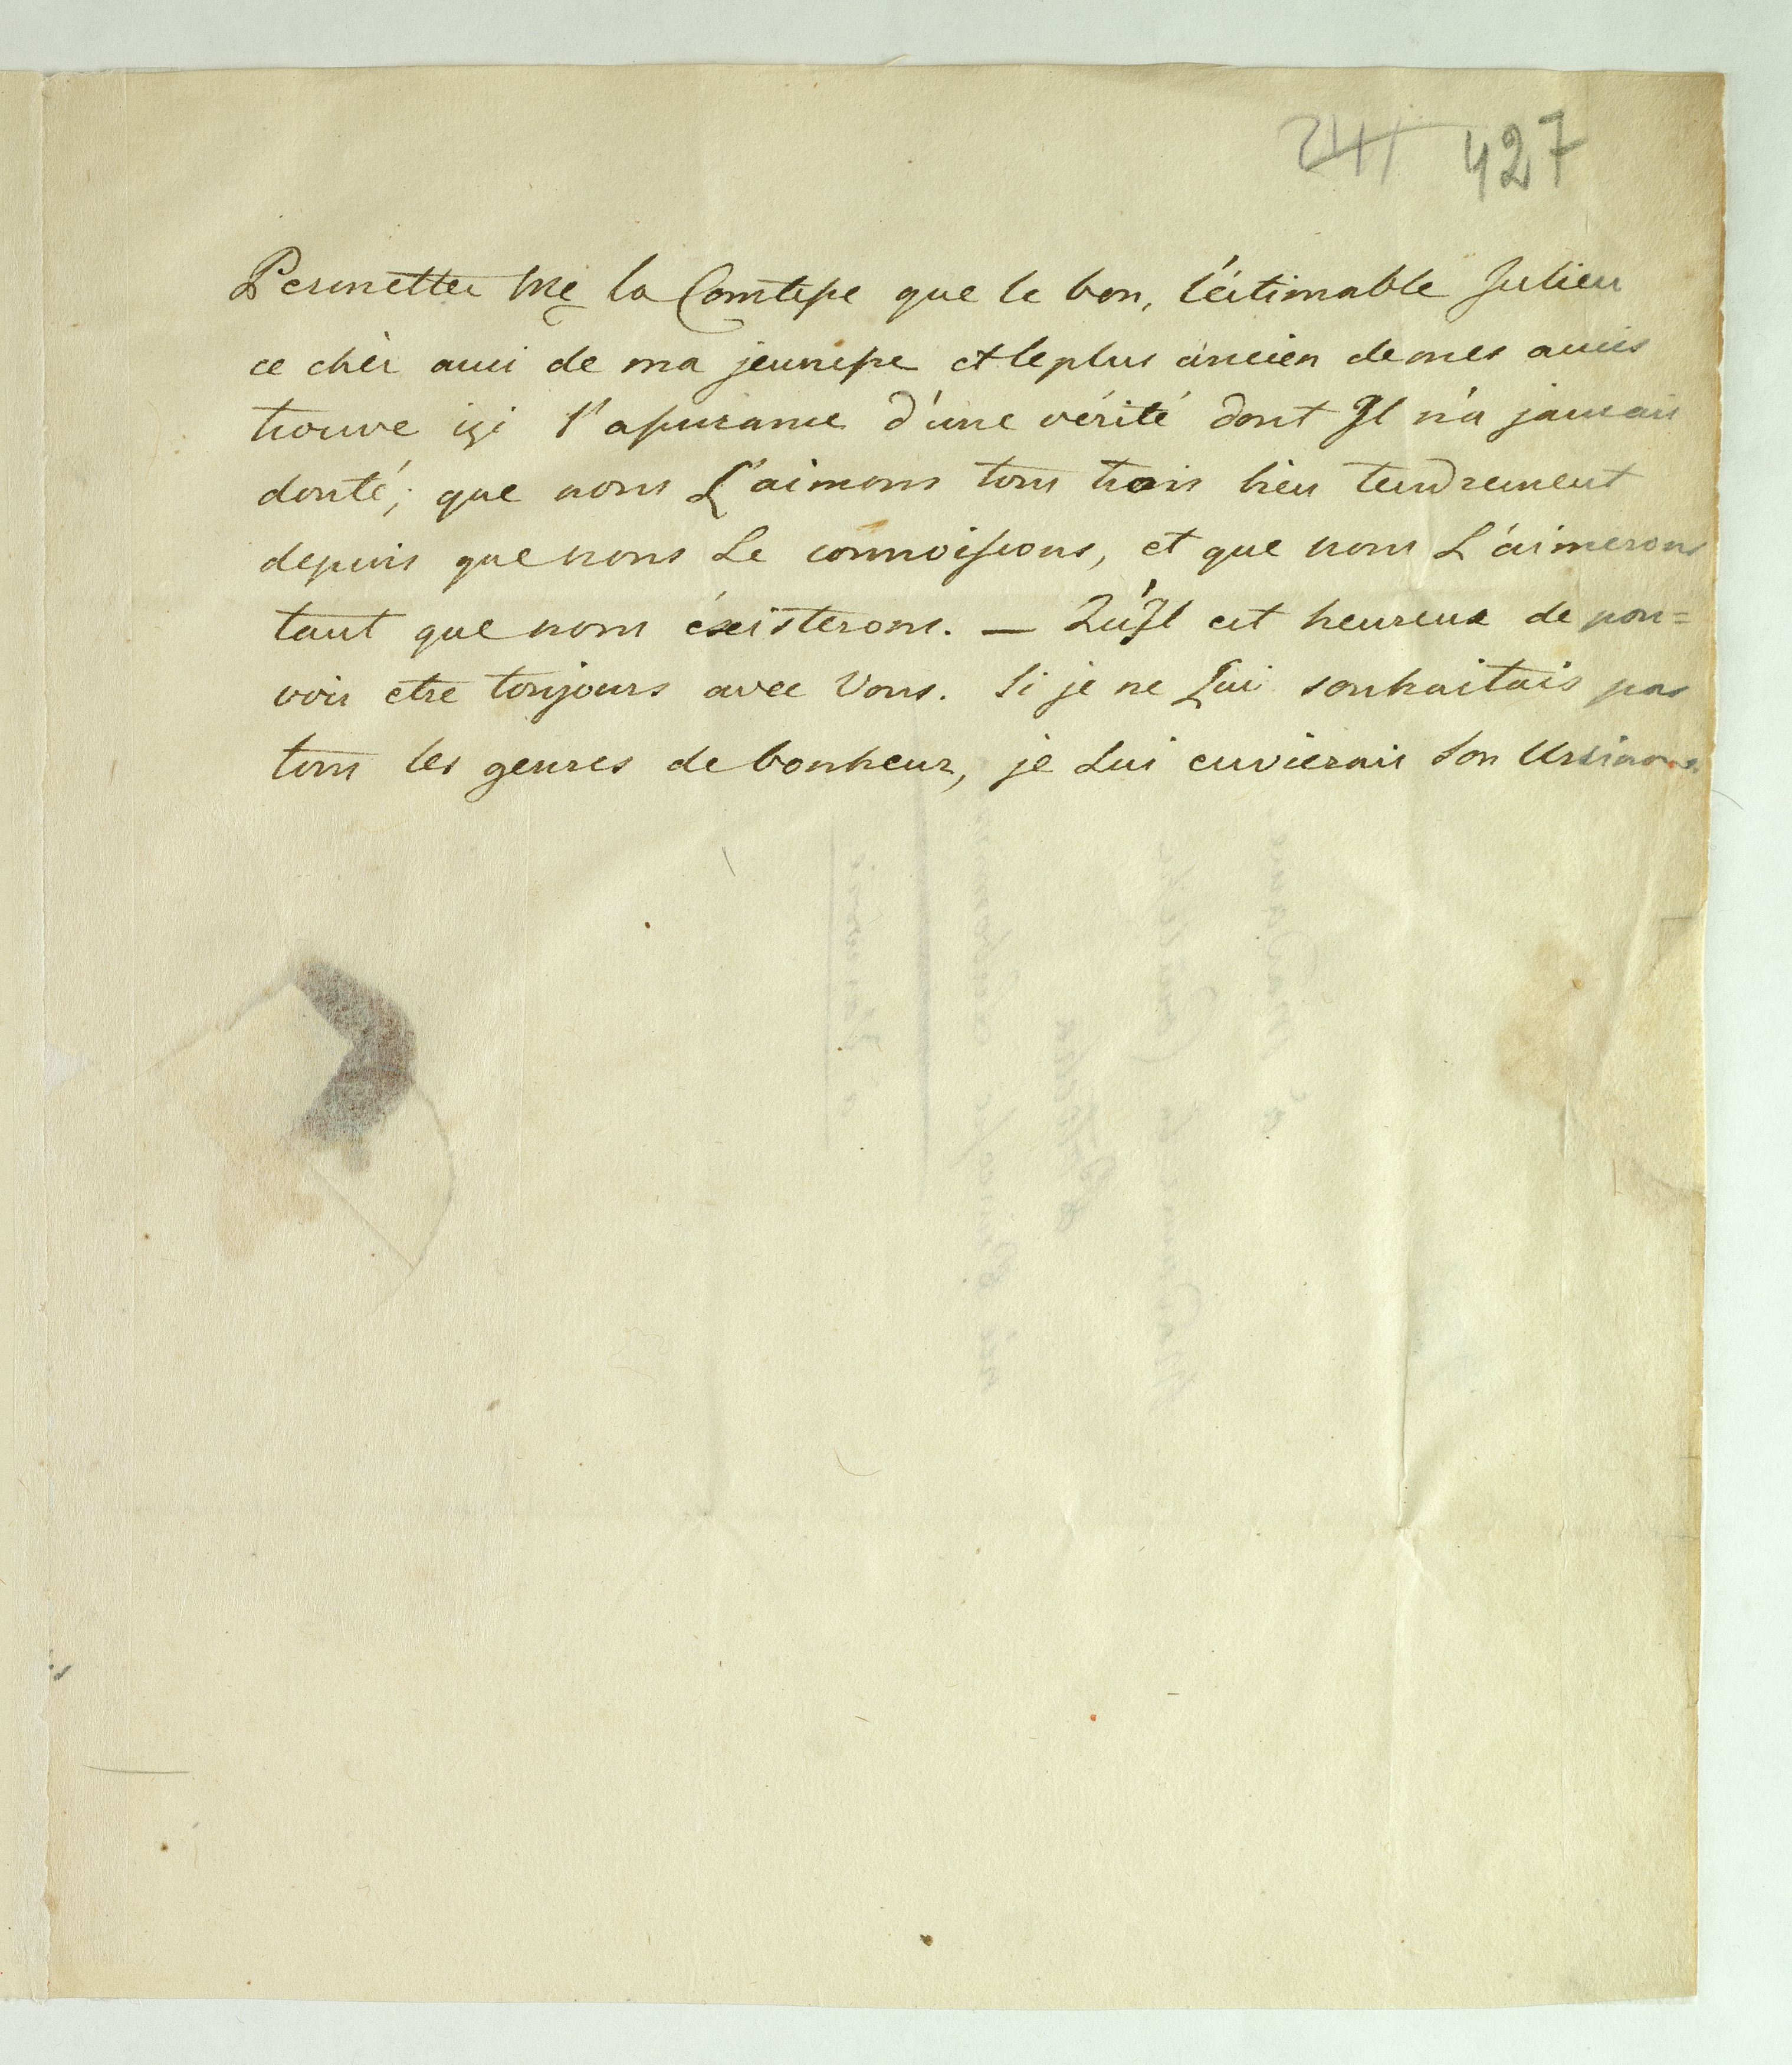 241 427
Permettez Me la Comtesse que le bon, l'éstimable Julien
ce chèr ami de ma jeunesse et le plus ancien de mes amis
trouve içi l'assurance d'une vérité dont Il n'a jamais
douté; que nous L'aimons tous trois bien tendrement
depuis que nous Le connoissons, et que nous L'aimerons
tant que nous éxisterons. — Qu'Il est heureux de pou=
voir etre toujours avec Vous. Si je ne Lui souhaitais pas
tous les genres de bonheur, je Lui envierais Son Ursinow.